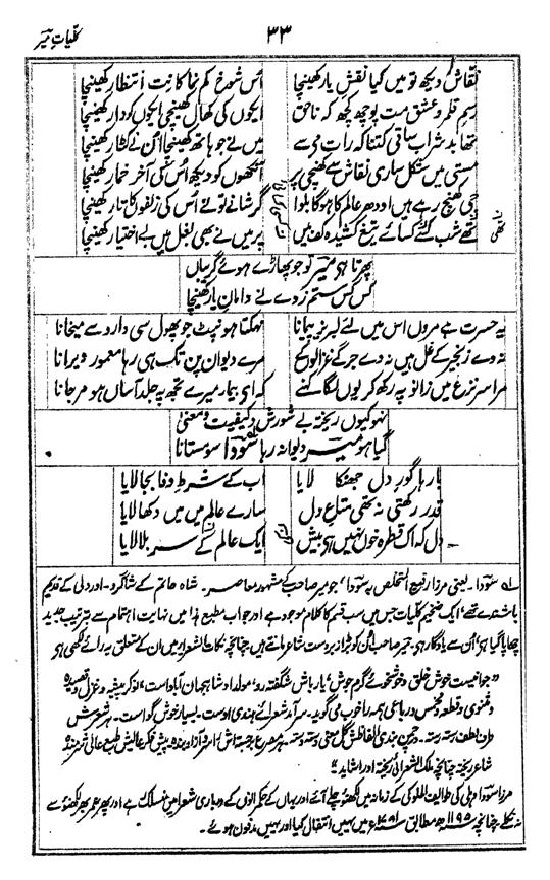 کلیاتِ میر
۳۳
نقاش دیکھ تو میں کیا نقشِ یار کھینچا
اُس شوخِ کم نما کا نت انتظار کھینچا
رسمِ قلمروِ عشق مت پوچھ کچھ کہ ناحق
ایکوں کی کھال کھینچی ایکوں کو دار کھینچا
تھا بد شراب ساقی کتنا کہ رات مے سے
میں نے جو ہاتھ کھینچا اُن نے کٹار کھینچا
مستی میں شکل ساری نقاش سے کھنچی پر
آنکھوں کو دیکھ اُس کی آخر خمار کھینچا
جی کھنچ رہے ہیں اودھر عالم کا ہوگا بلوا
گر شانے تو نے اُس کی زلفوں کا تار کھینچا
تھے شب کسے کسائے تیغِ کشیدہ کف میں
پر میں نے بھی بغل میں بے اختیار کھینچا
پھرتا ہی میر تو جو پھاڑے ہوئے گریباں
کس کس ستم زدے نے دامانِ یار کھینچا
یہ حسرت ہے مروں اس میں لئے لبریز پیمانا
مہکتا ہو نپٹ جو پھول سی دارو سے میخانا
نہ وے زنجیر کے غل ہیں نہ وے جرگے غزالوں کے
مرے دیوان پن تک ہی رہا معمور ویرانا
مرا سر نزع میں زانو پہ رکھ کر یوں لگا کہنے
کہ ای بیمار میرے تجھ پہ جلد آساں ہو مر جانا
نہو کیوں ریختہ بے شورش و کیفیت و معنی
گیا ہو میر دیوانہ رہا سودا سو مستانا
بارہا گورِ دل جھنکا لایا
اب کے شرطِ وفا بجا لایا
قدر رکھتی نہ تھی متاعِ دل
سارے عالم میں میں دکھا لایا
دل کہ اک قطرہ خوں نہیں ہی بیش
ایک عالم کے سر بلا لایا
لہ سودا۔ یعنی مرزا رفیع المتخلص بہ سودا، جو میر صاحب کے مشہور معاصر۔ شاہ حاتم کے شاگرد۔ اور دلی کے قدیم
باشندے تھے، ایک ضخیم کلیات جس میں سب قسم کا کلام موجود ہے اور جو اب مطبع ہذا میں نہایت اہتمام سے بترتیب جدید
چھاپا گیا ہو، اُن سے یادگار ہو، میر صاحب اُن کو بڑا زبردست شاعر مانتے ہیں چنانچہ نکات الشعرا میں ان کے متعلق یہ رائے لکھی ہو
"جوانیست خوش خلق و خوشخوئے گرم جوش، یار باش شگفتہ رو، مولد او شاہجہان آباد است، نوکر پیشہ و غزل و قصیدہ
و مثنوی و قطعہ و مخمس و رباعی ہمہ را خوب می گوید۔ سرآمد شعرائے ہندی اوست۔ بسیار خوش گو است۔ ہر شعرش
طرفِ لطف رستہ رستہ۔ در چمن بندی الفاظش گل معنی دستہ دستہ۔ ہر مصرع برجستہ اش را سرو آزاد بندہ۔ پیش فکر عالیش طبع عالی شرمندہ
شاعر ریختہ چنانچہ ملک الشعرائی ریختہ او را شاید۔"
مرزا سودا دہلی کی طوائف الملوکی کے زمانہ میں لکھنؤ چلے آئے اور یہاں کے حکمرانوں کے درباری شعرا میں منسلک رہے اور پھر عمر بھر لکھنؤ سے
نہ نکلے چنانچہ ۱۱۹۵ھ مطابق ۱۷۸۱ء میں یہیں انتقال کیا اور یہیں مدفون ہوئے۔